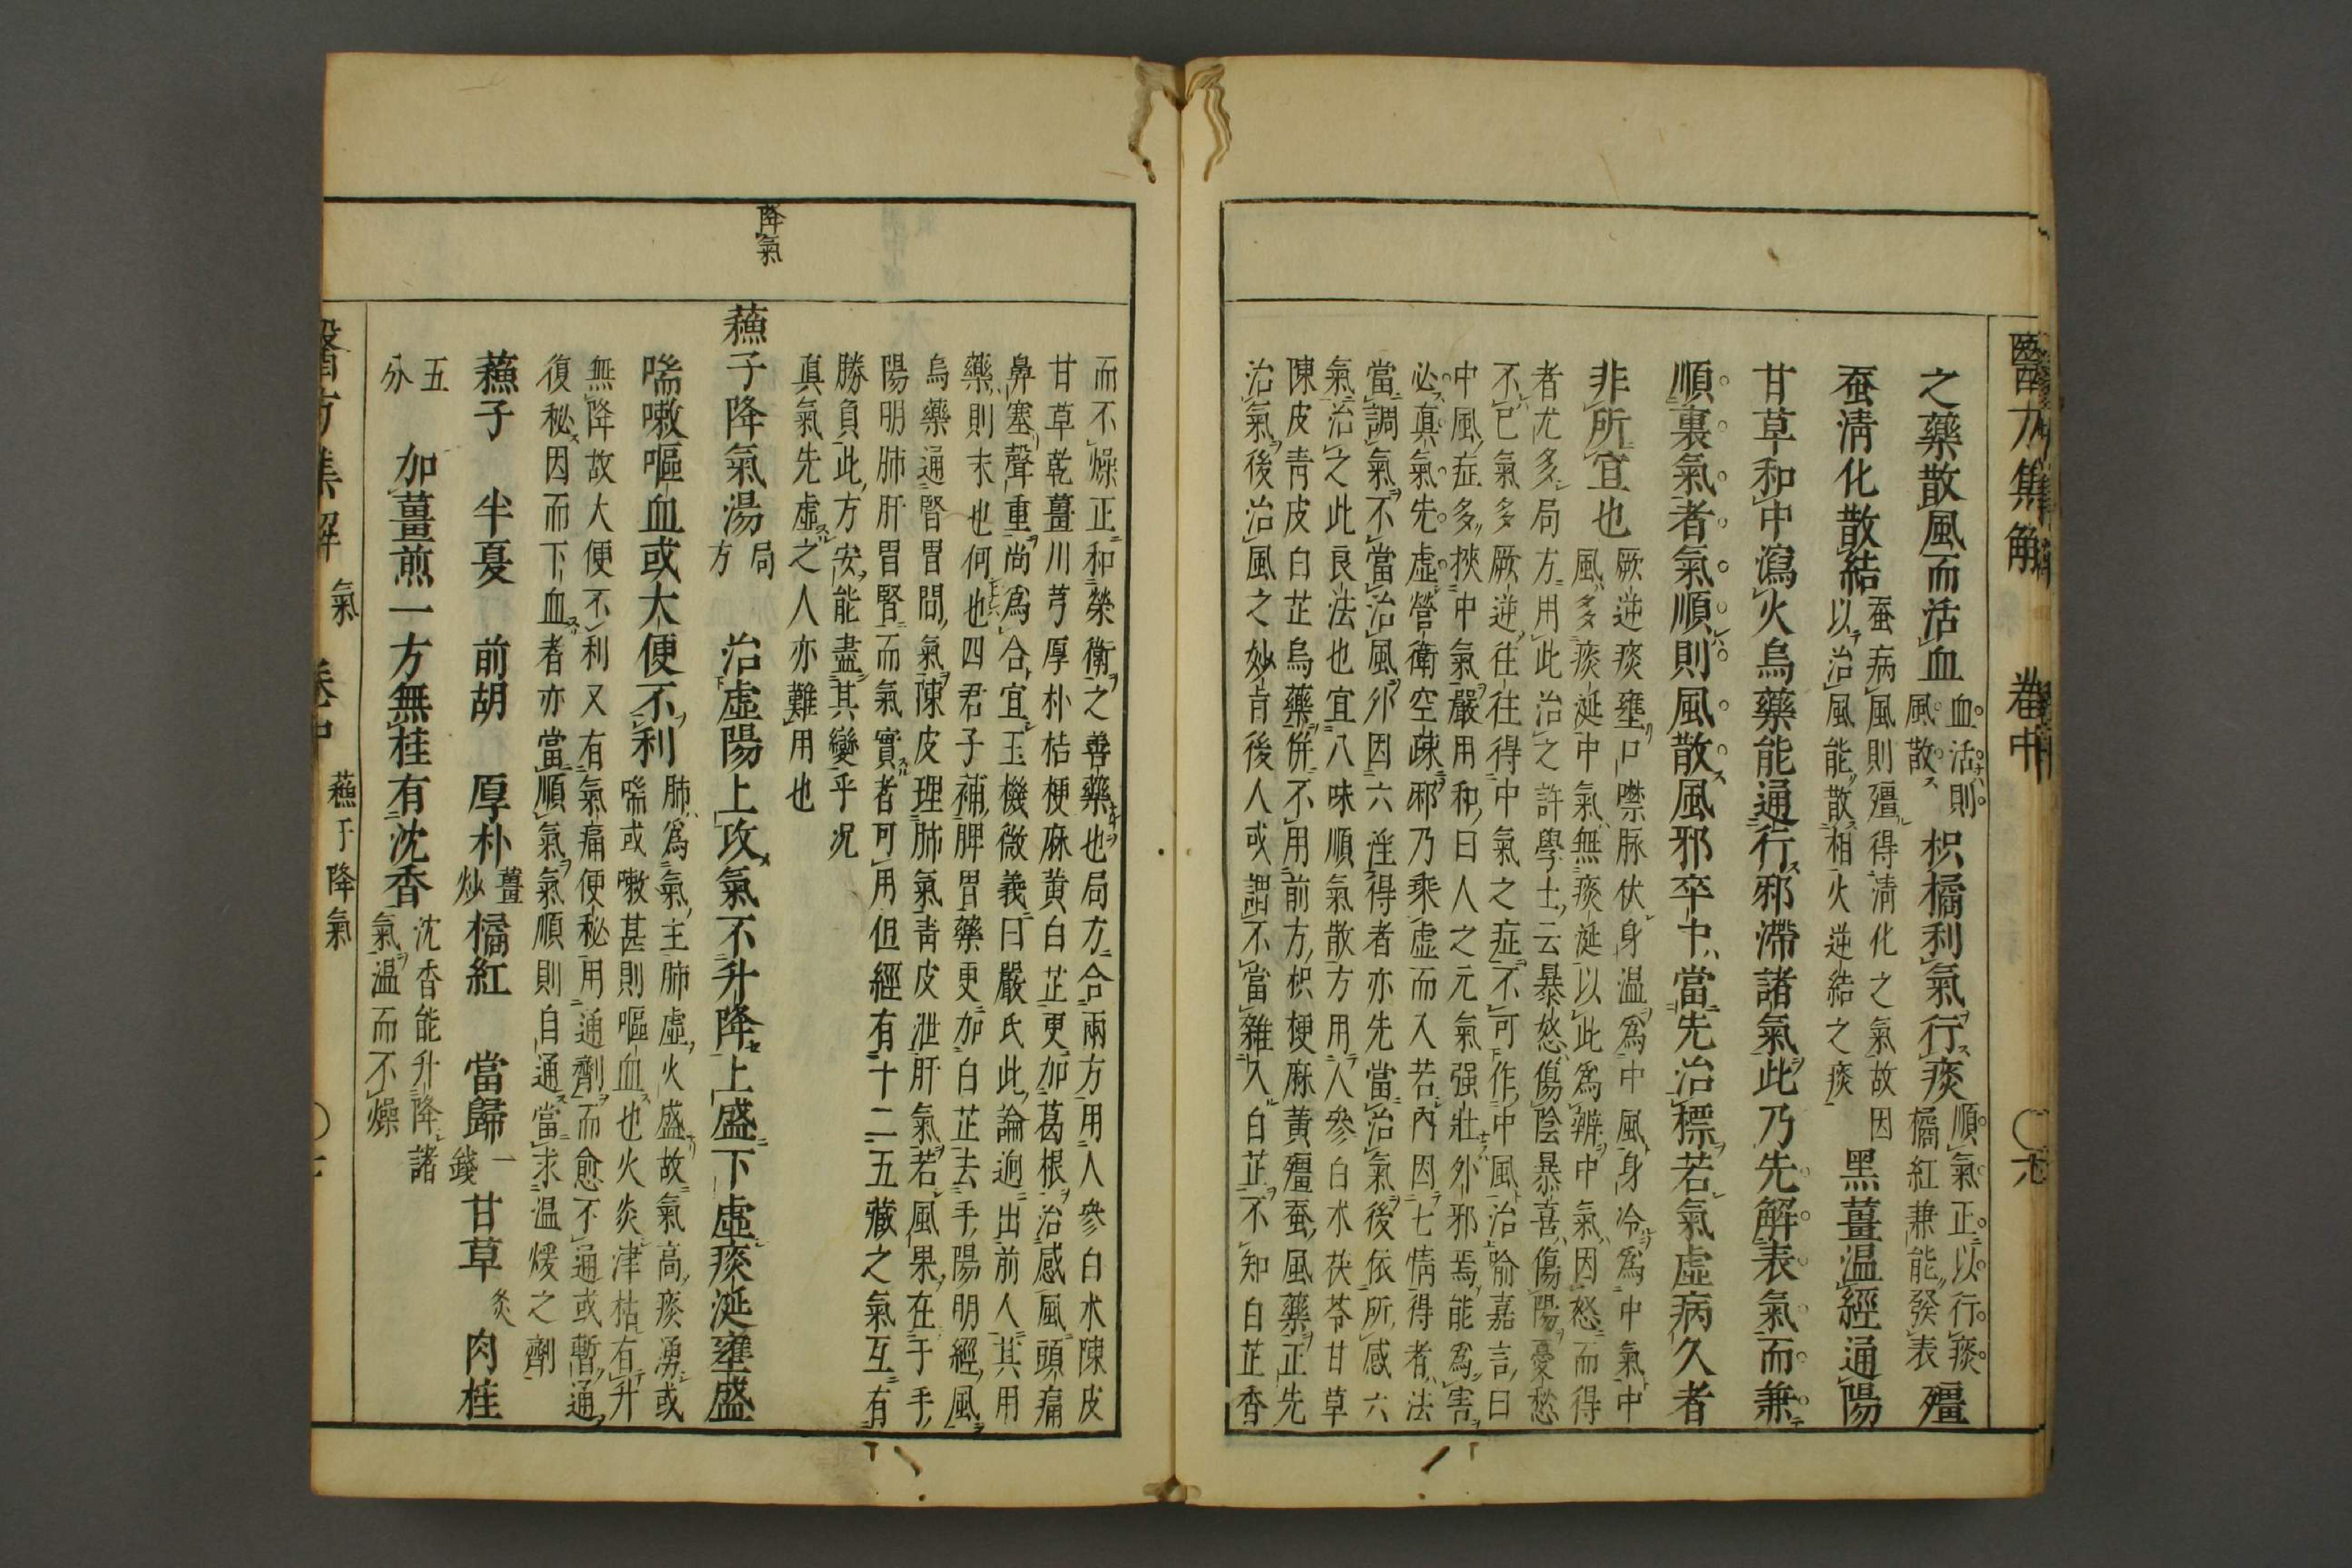 之藥散風而活血血活則風散枳橘利氣行痰順氣正以行痰橘紅兼能發表殭
蚕淸化散結蚕病風則殭得淸化之氣故因以治風能散相火逆結之痰黑薑温經通陽
甘草和中瀉火烏藥能通行邪滯諸氣此乃先解表氣而兼
順裏氣者氣順則風散風邪卒中當先治標若氣虛病久者
非所宜也厥逆痰壅口噤脉伏身温爲中風身冷爲中氣中風多痰涎中氣無痰涎以此爲辨中氣因怒而得
者尤多局方用此治之許學士云暴怒傷陰暴喜傷陽憂愁
不已氣多厥逆往往得中氣之症不可作中風治喻嘉言曰
中風症多挾中氣嚴用和曰人之元氣强壯外邪焉能爲害
必眞氣先虛營衛空疎邪乃乘虛而入若內因七情得者法
當調氣不當治風外因六淫得者亦先當治氣後依所感六
氣治之此良法也宜八味順氣散方用人參白朮茯苓甘草
陳皮靑皮白芷烏藥倂不用前方枳梗麻黃殭蚕風藥正先
治氣後治風之妙旨後人或謂不當雜入白芷不知白芷香
醫方集解 卷中
而不燥正和榮衛之善藥也局方合兩方用人參白朮陳皮
甘草乾薑川芎厚朴桔梗麻黃白芷更加葛根治感風頭痛
鼻塞聲重尚爲合宜玉機微義曰嚴氏此論逈出前人其用
藥則未也何也四君子補脾胃藥更加白芷去手陽明經風
烏藥通腎胃間氣陳皮理肺氣靑皮泄肝氣若風果在于手
陽明肺肝胃腎而氣實者可用但經有十二五藏之氣互有
勝負此方安能盡其變乎况
眞氣先虛之人亦難用也
降氣
蘓子降氣湯局方 治虛陽上攻氣不升降上盛下虛痰涎壅盛
喘嗽嘔血或大便不利肺爲氣主肺虛火盛故氣高痰湧或喘或嗽甚則嘔血也火炎津枯有升
無降故大便不利又有氣痛便秘用通劑而愈不通或暫通
復秘因而下血者亦當順氣氣順則自通當求温煖之劑
蘓子 半夏 前胡 厚朴薑炒 橘紅 當歸一錢 甘草炙 肉桂
五分 加薑煎一方無桂有沈香沈香能升降諸氣温而不燥
醫方集解 氣 卷中 蘓子降氣